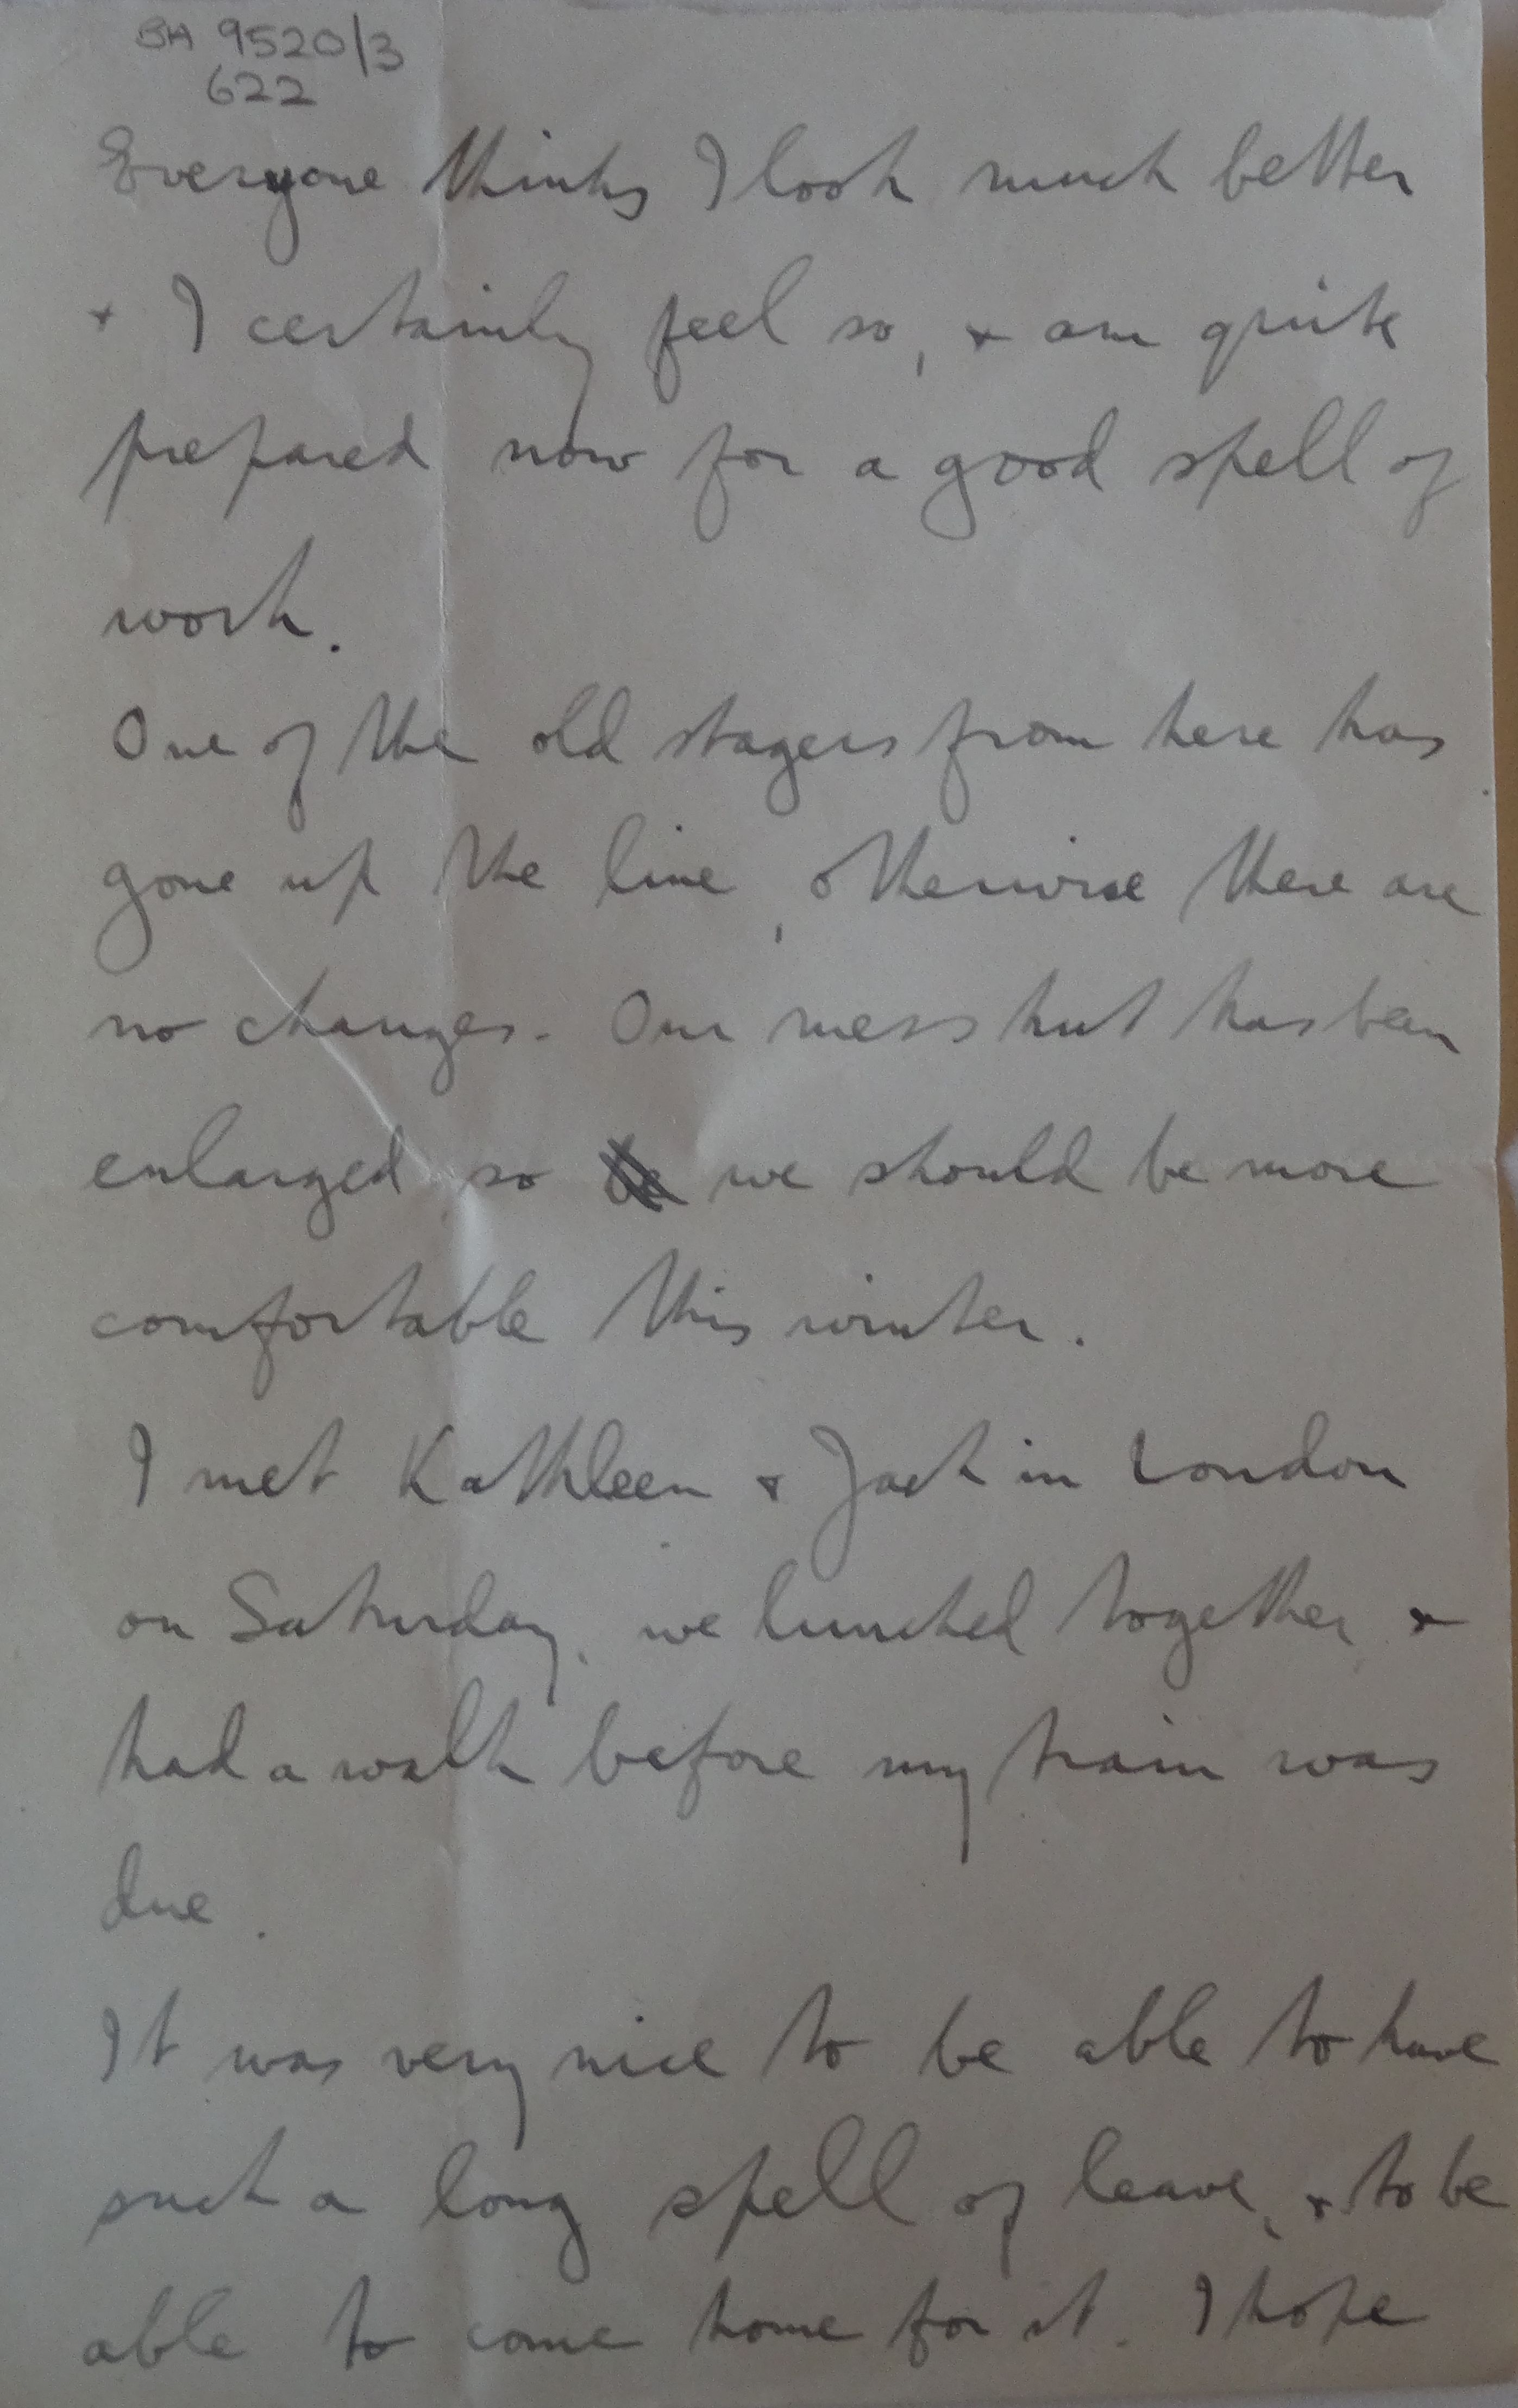 BA 9520/3
622
Everyone thinks I look much better
+ I certainly feel so, + am quite
prepared now for a good spell of
work.
One of the old stagers from here has
gone up the line, otherwise there are
no changes. Our mess hut has been
enlarged so we should be more
comfortable this winter.
I met Kathleen + Jack in London
on Saturday, we lunched together, +
had a walk before my train was
due.
It was very nice to be able to have
such a long spell of leave, + to be
able to come home for it. I hope